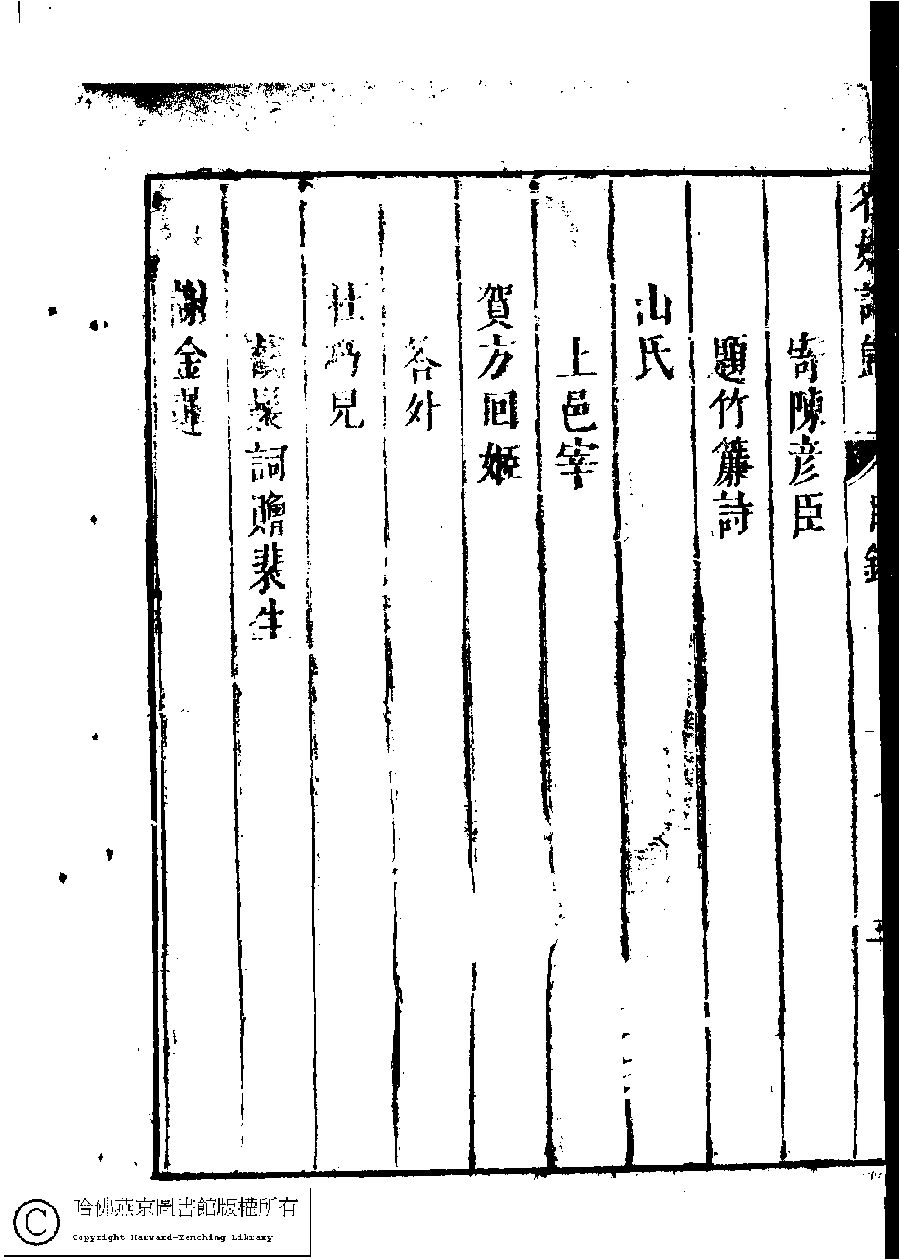 寄陳彦臣
題竹簾詩
山氏
上邑宰
賀方回姬
答外
杜巧兒
詞贈裴生
謝金蓮
哈佛燕京圖書館版權所有
Copyright Harvard-Yenching Library